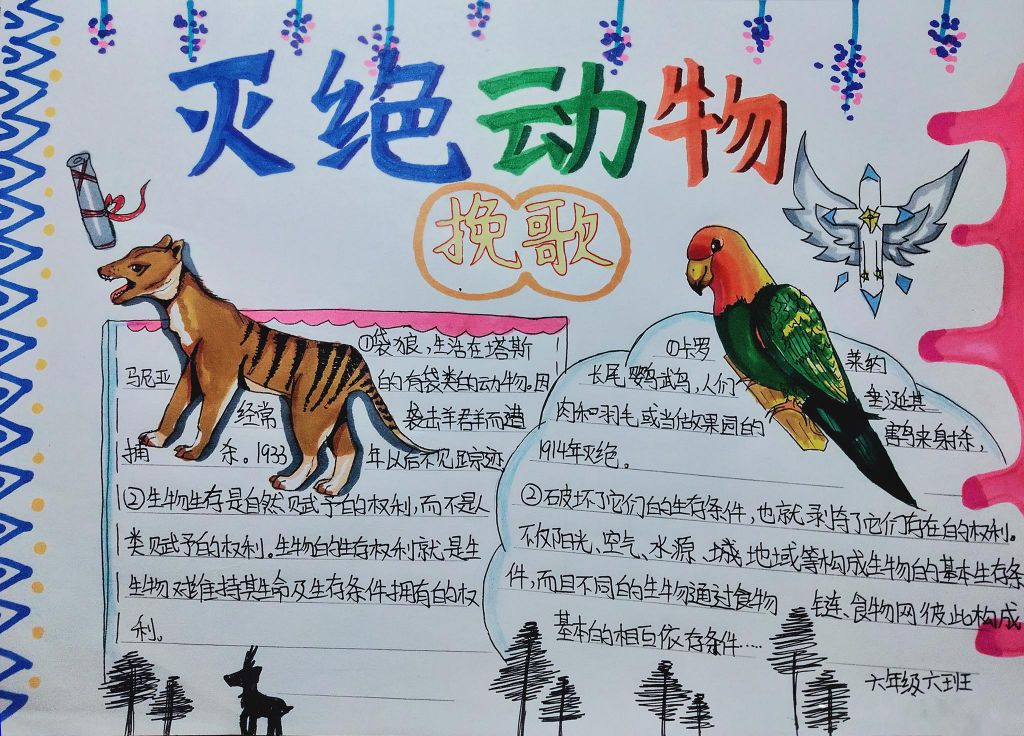 灭绝动物
挽歌
①袋狼，生活在塔斯
马尼亚的有袋类的动物。因
经常袭击羊群羊而遭
捕杀。1933年以后不见踪迹
②生物生存是自然赋予的权利，而不是人
类赋予的权利。生物的生存权利就是生
生物对维持其生命及生存条件拥有的权
利。
①卡罗莱纳
长尾鹦鹉，人们垂涎其
肉和羽毛或当做果园的害鸟来射杀，
1914年灭绝。
②破坏了它们的生存条件，也就剥夺了它们存在的权利。
不仅阳光、空气、水源、城地域等构成生物的基本生存条
件，而且不同的生物通过食物链、食物网彼此构成
基本的相互依存条件……
六年级六班